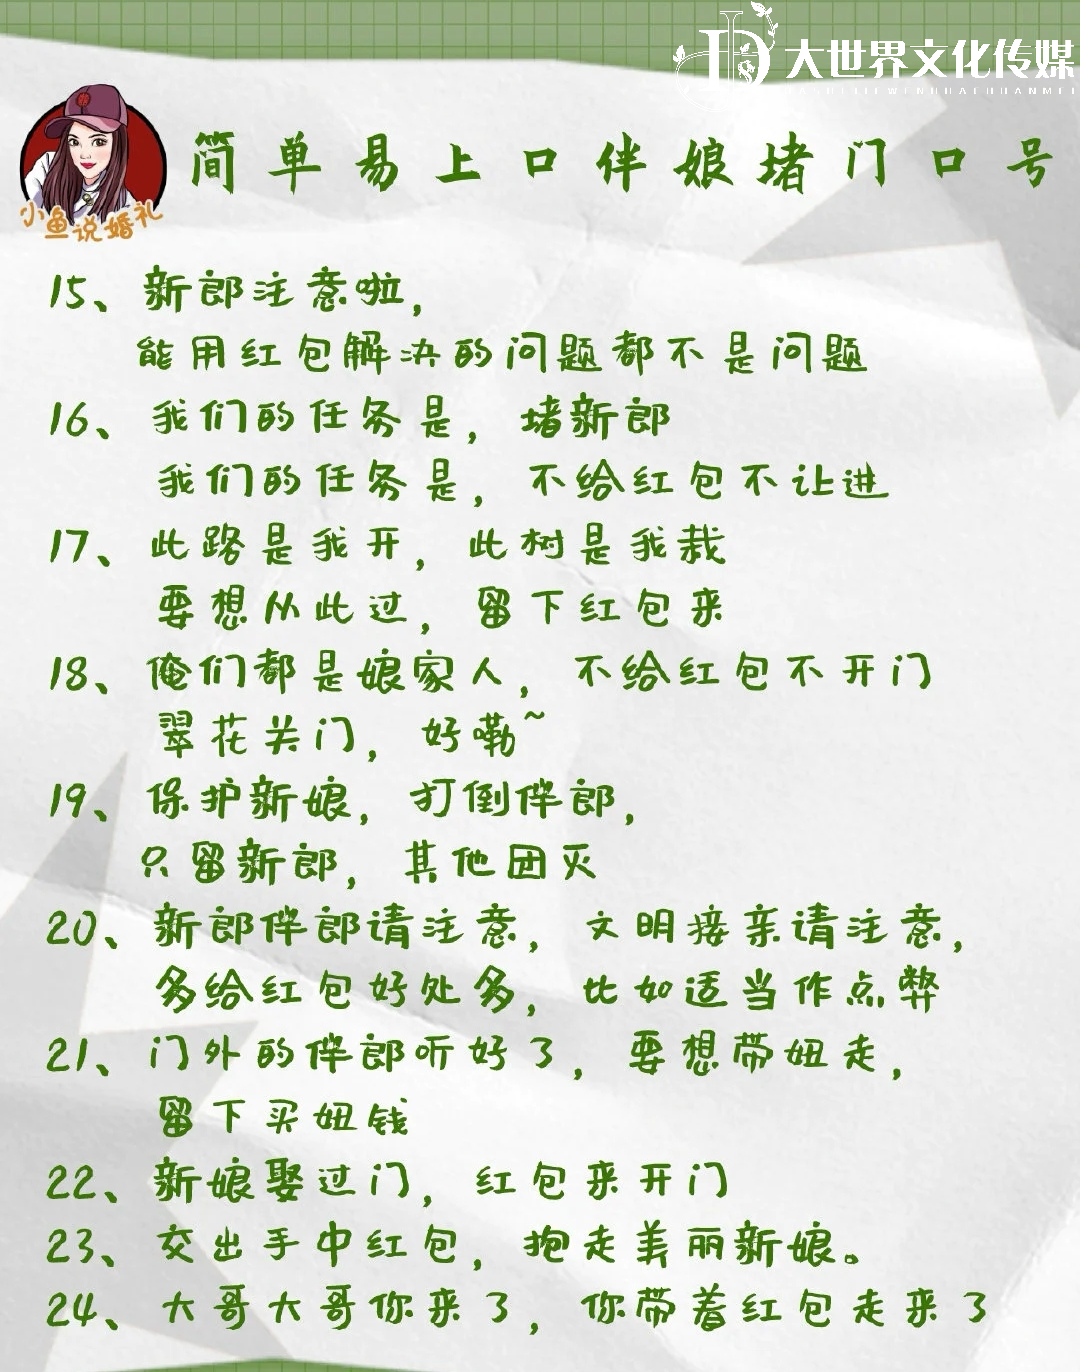 大世界文化传媒
DASHIJIEWENHUACHUANMEI
小鱼说婚礼
简单易上口伴娘堵门口号
15、新郎注意啦，
能用红包解决的问题都不是问题
16、我们的任务是，堵新郎
我们的任务是，不给红包不让进
17、此路是我开，此树是我栽
要想从此过，留下红包来
18、俺们都是娘家人，不给红包不开门
翠花关门，好嘞~
19、保护新娘，打倒伴郎，
只留新郎，其他团灭
20、新郎伴郎请注意，文明接亲请注意，
多给红包好处多，比如适当作点弊
21、门外的伴郎听好了，要想带妞走，
留下买妞钱
22、新娘娶过门，红包来开门
23、交出手中红包，抱走美丽新娘。
24、大哥大哥你来了，你带着红包走来了